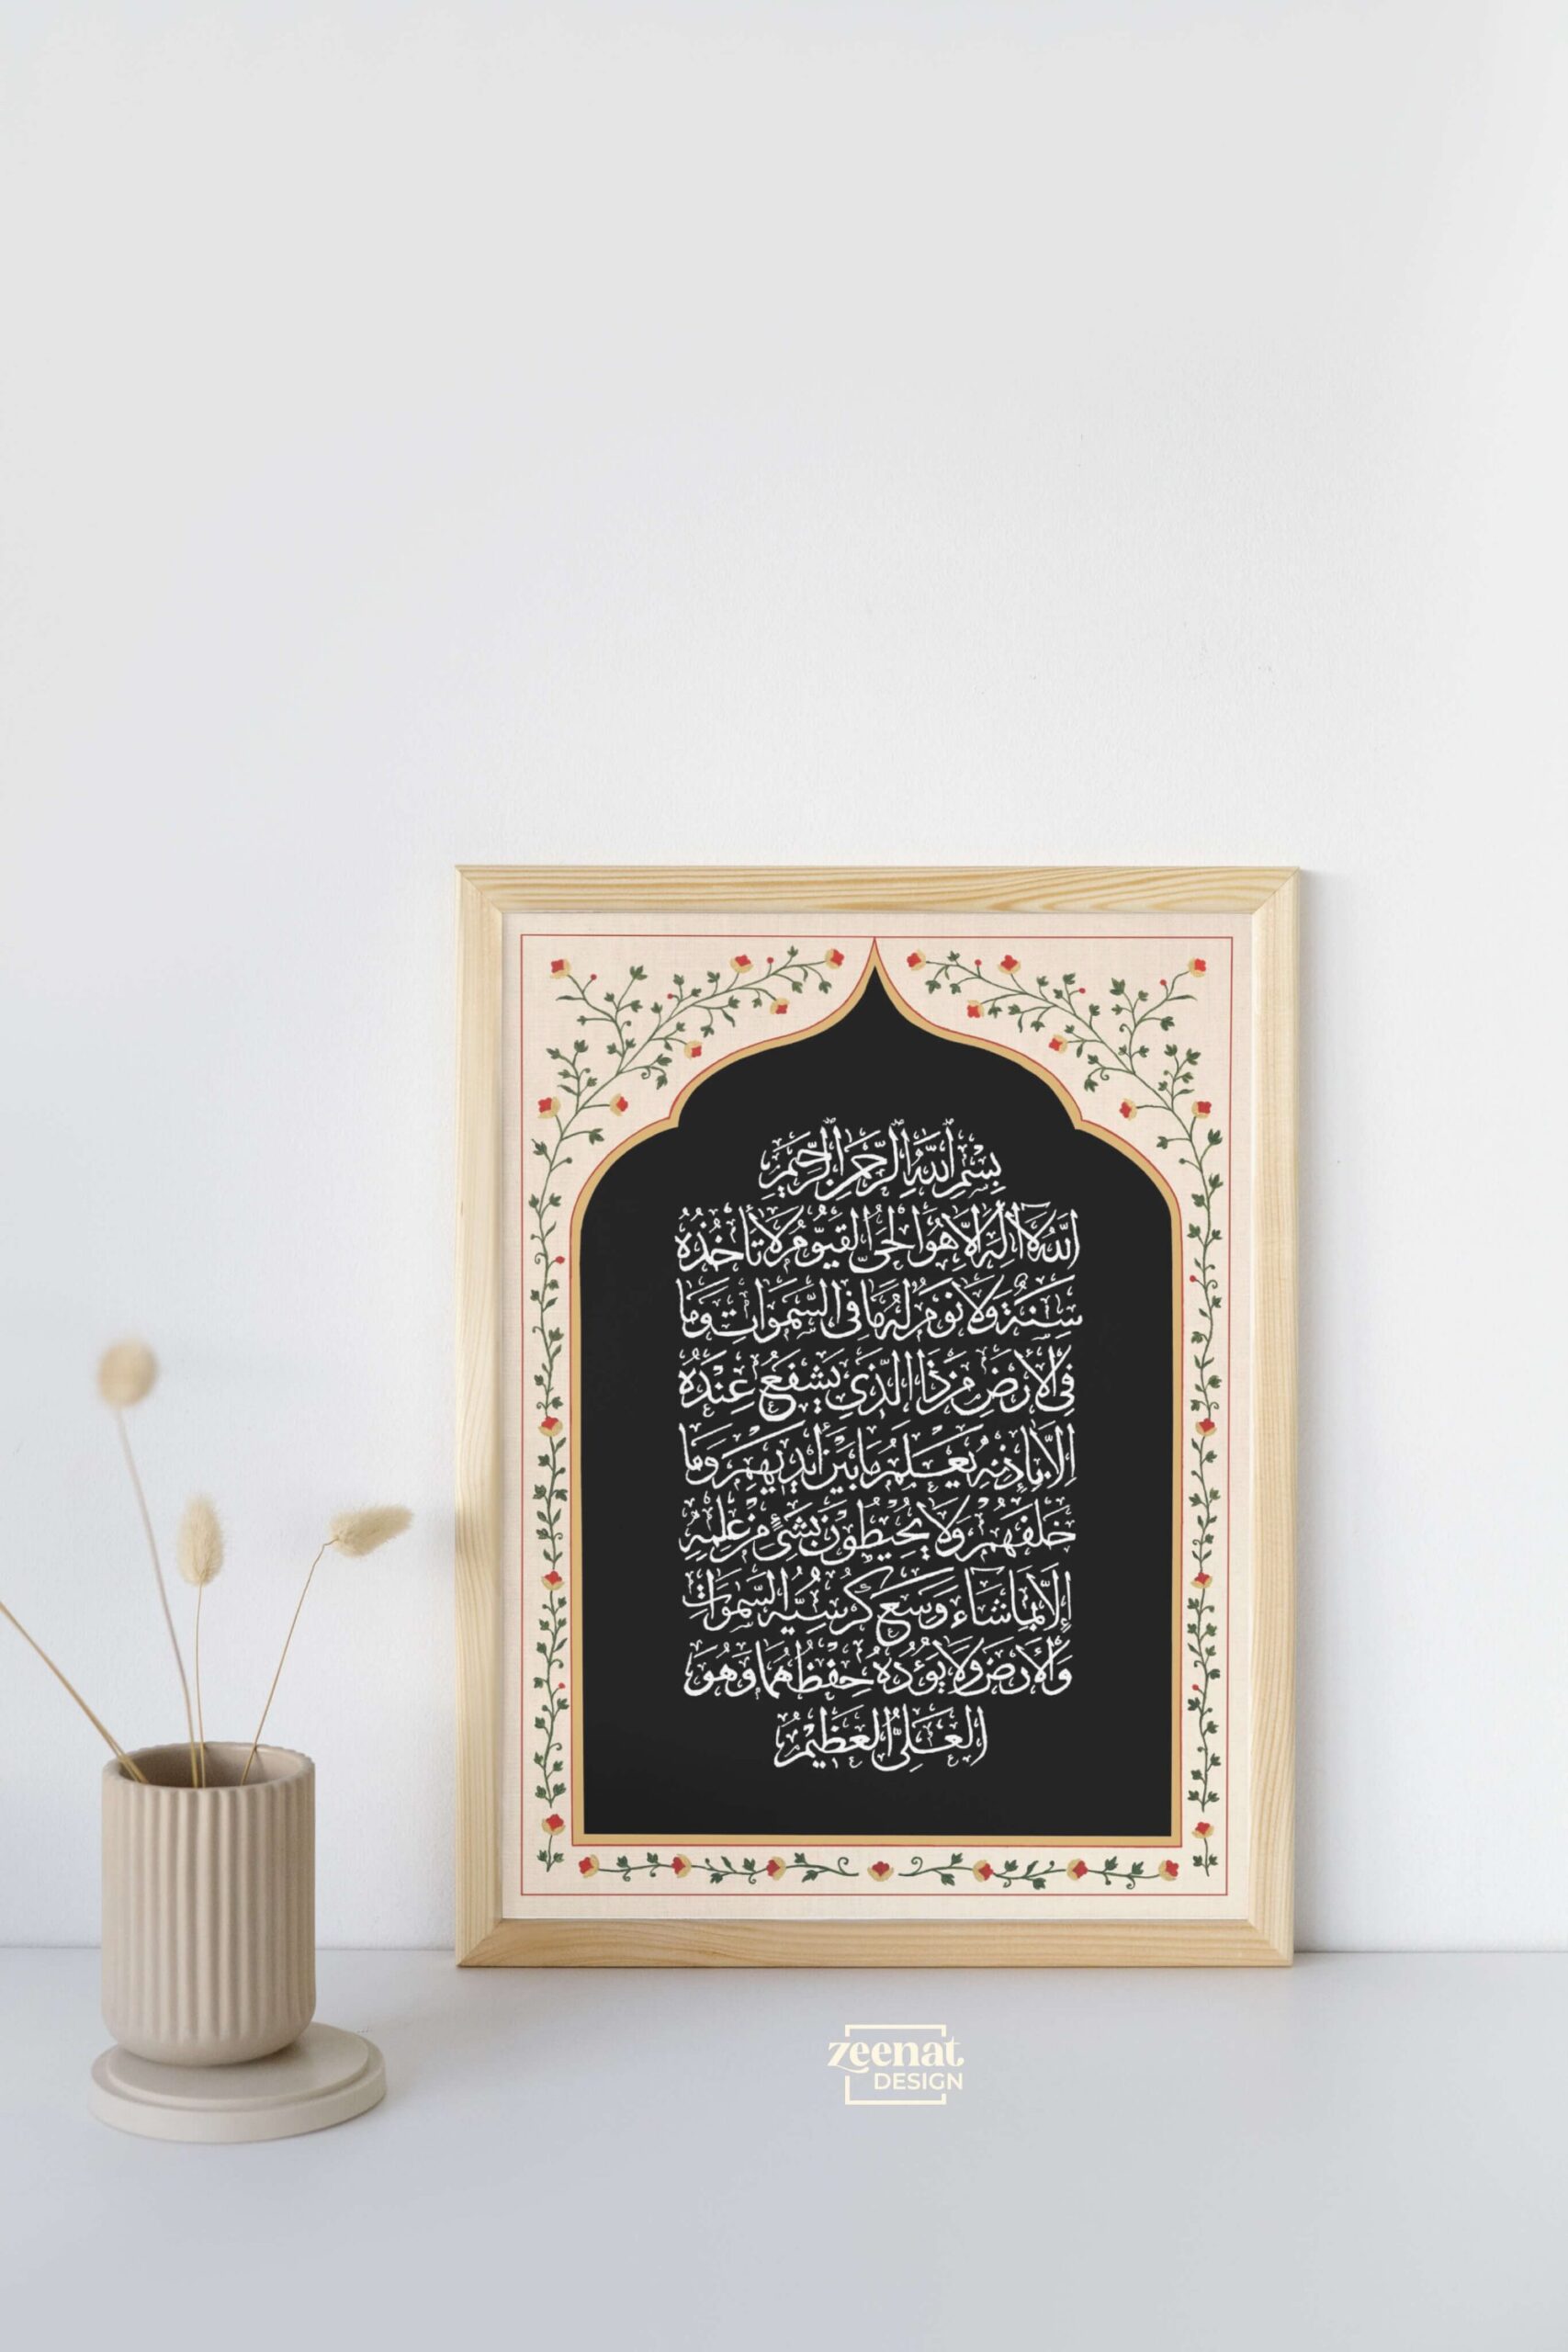 بِسْمِ اللَّهِ الرَّحْمَٰنِ الرَّحِيمِ
اللَّهُ لَا إِلَٰهَ إِلَّا هُوَ الْحَيُّ الْقَيُّومُ لَا تَأْخُذُهُ
سِنَةٌ وَلَا نَوْمٌ لَهُ مَا فِي السَّمَوَاتِ وَمَا
فِي الْأَرْضِ مَنْ ذَا الَّذِي يَشْفَعُ عِنْدَهُ
إِلَّا بِإِذْنِهِ يَعْلَمُ مَا بَيْنَ أَيْدِيهِمْ وَمَا
خَلْفَهُمْ وَلَا يُحِيطُونَ بِشَيْءٍ مِنْ عِلْمِهِ
إِلَّا بِمَا شَاءَ وَسِعَ كُرْسِيُّهُ السَّمَوَاتِ
وَالْأَرْضَ وَلَا يَئُودُهُ حِفْظُهُمَا وَهُوَ
الْعَلِيُّ الْعَظِيمُ
zeenat
DESIGN